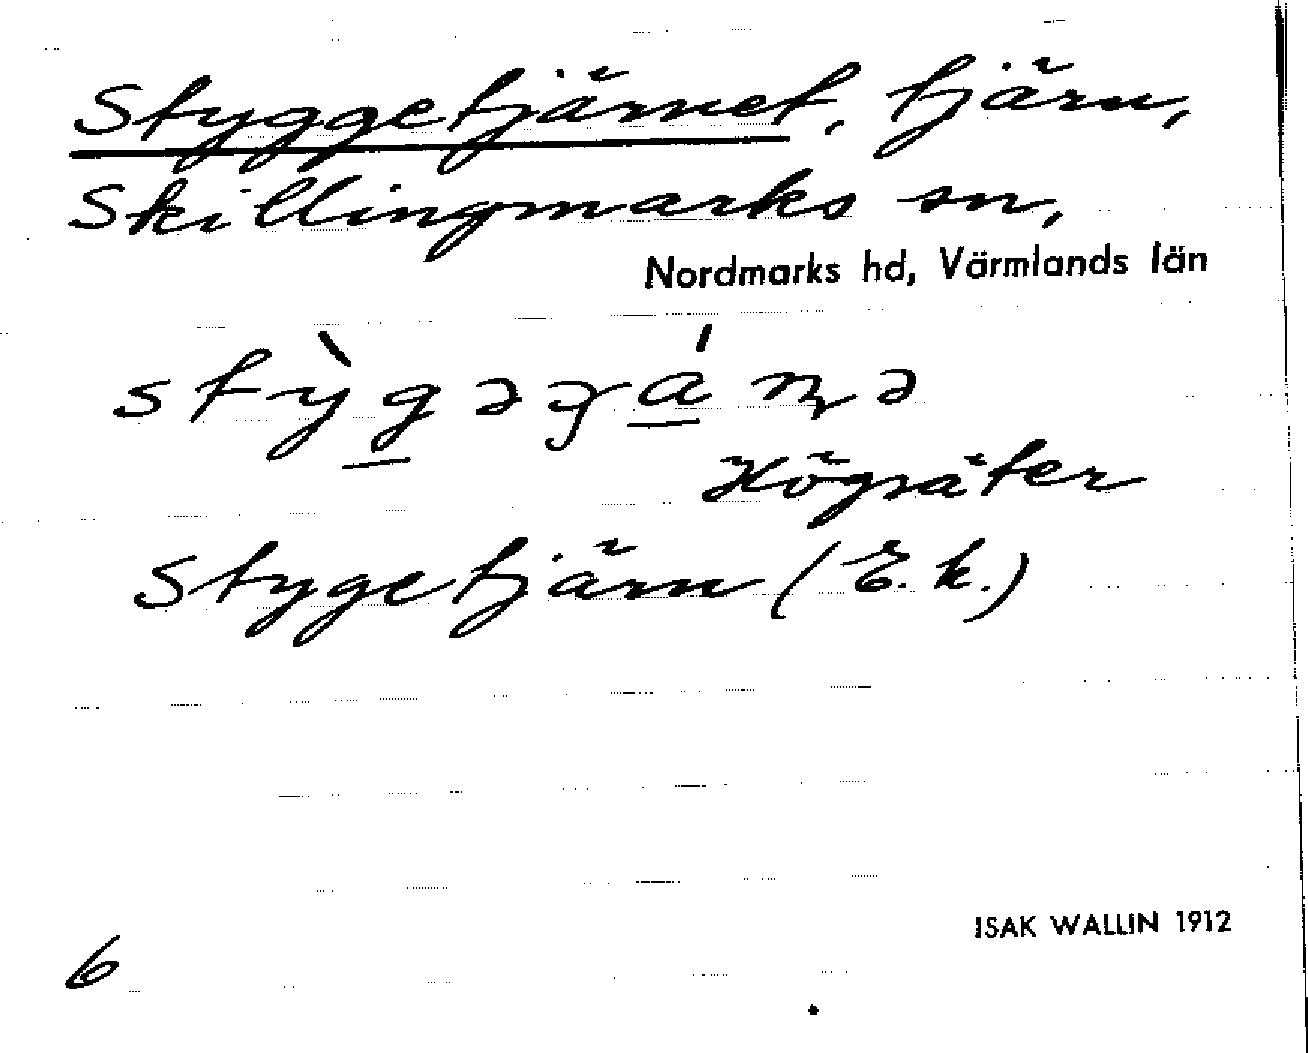 Styggetjärnet, tjärn,
Skillingmarks sn,
Nordmarks hd, Värmlands län
Högsäter
Stygetjärn (E.k.)
ISAK WALLIN 1912
6